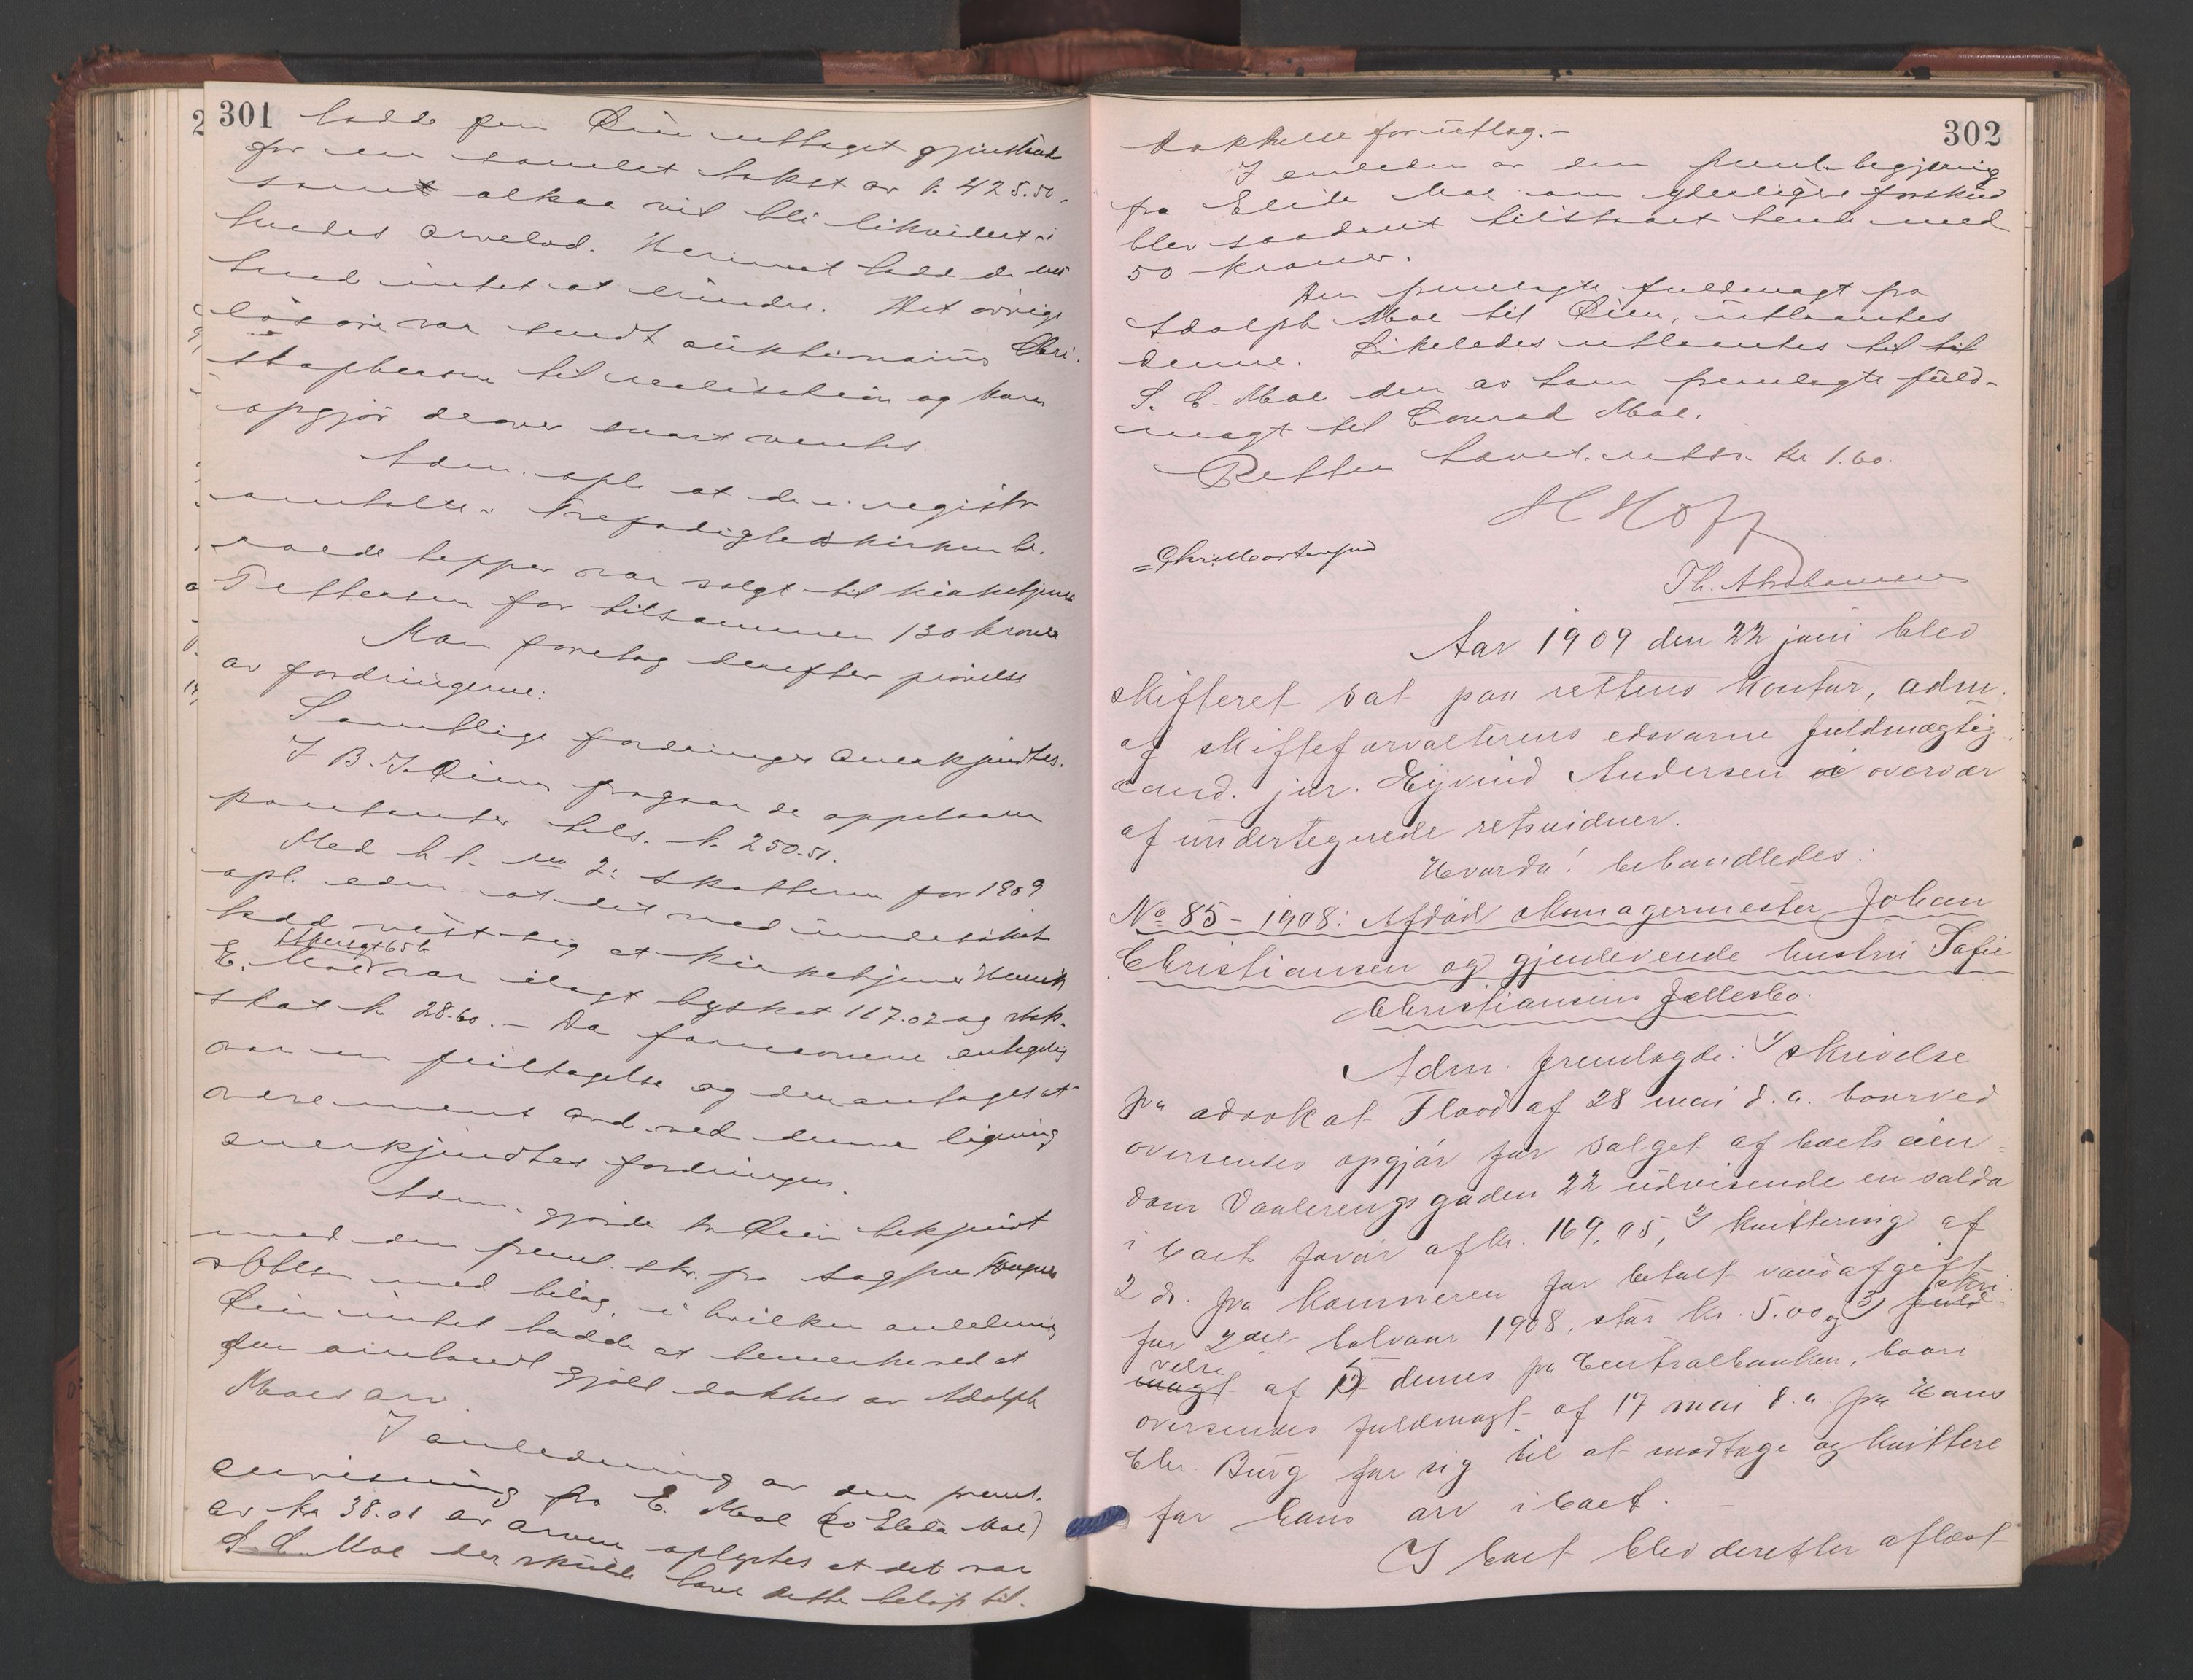 301
hadde hr. Øien uttaget gjenstande
for en samlet takst av k. 425.50,
samt alkaa vil bli likvidert i
hendes arvelod. Herimot hadde de
intet at erindre. Det övrige
lösöre var sendt auktionarius Chri-
stophersen til realisation og kan
opgjör derover snart ventes.
Adm. opl. at de i registr.
omtalte i Trefoldighedskirken be-
roende tepper var solgt til kirketjener
Pettersen for tilsammen 130 kroner
Man foretog derefter prövelse
av fordringerne:
Samtlige fordringer anerkjendtes.
I B. J. Øiens fragaar de oppebaarne
kontanter tils. k. 250.51.
Med h.t. nr 2: skatten for 1909
opl. adm. at det ved undersökelse
hadde vist sig at kirketjener Henrik
E. Moe var ilagt byskat 117.02 og stats-
skat k. 28.60. – Da forannevnte
var en feiltagelse og den antages at
være ment avd. ved denne ligning
anerkjendtes fordringen.
Adm. gjorde hr. Øien bekjendt
med den freml. skr. fra sagförer
Olsen med bilag, i hvilken anledning
Øien intet hadde at bemerke ved at
den omhandl. gjæld dækkes av Adolph
Moes arv.
I anledning av den freml.
anvisning fra E. Moe (to Elida Moe)
av kr. 38.01 av arven oplystes at det var
S. C. Moe der skulde have dette belöp til-
302
dækkelse for utlæg. –
I anledn. av den freml. begjæring
fra Elida Moe om yderligere forskud
blev saadant tilstaaet hende med
50 kroner.
Den fremlagte fuldmagt fra
Adolph Moe til Øien, utlaantes
denne. Likeledes utlaantes til
S. C. Moe den av ham fremlagte fuld-
magt til Conrad Moe.
Retten hævet. retsv. kr 1.60
H Hoff
Chr. Mortensen
Aar 1909 den 22 juni blev
skifteret sat paa rettens kontor, adm.
af skifteforvalterens edsvorne fuldmægtig
cand. jur. Eyvind Andersen i overvær
af undertegnede retsvidner.
Hvorda! behandledes:
No 85 – 1908: Afdöd skomagermester Johan
Christiansen og gjenlevende hustru Sofie
Christiansens fællesbo.
Adm. fremlagde: 1) skrivelse
fra advokat Flood af 28 mai d.a. hvorved
oversendes opgjör for salget af boets eien-
dom Vaalerengsgaden 22 udvisende en saldo
i boets favör af kr. 169,05, 2) kvittering af
2 ds. fra kæmneren for betalt vandafgift
for 2det halvaar 1908, stor kr. 5.00 og 3) skri-
velse af 15 dennes fra Centralbanken, hvori
oversendes fuldmagt af 17 mai d.a. fra Hans
Chr. Burg for sig til at modtage og kvittere
for hans arv i boet. –
I boet blev derefter aflæst